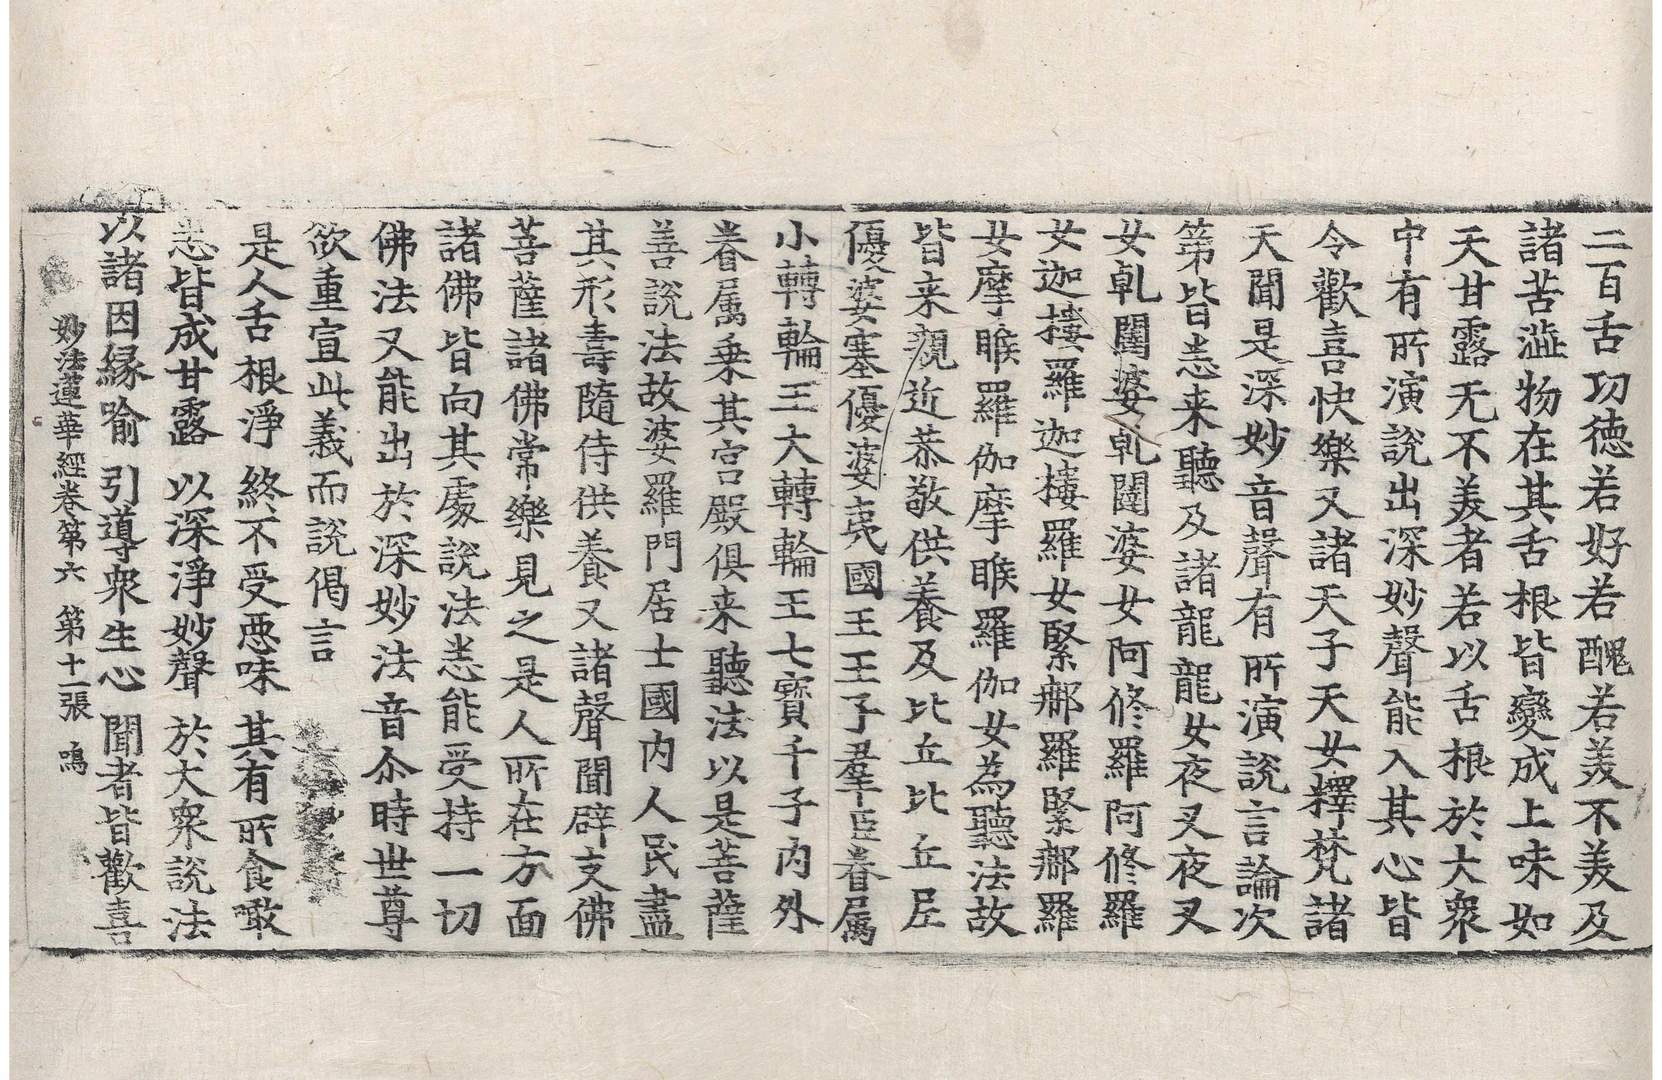 二百舌功德若好若醜若美不美及
諸苦澁物在其舌根皆變成上味如
天甘露无不美者若以舌根於大衆
中有所演說出深妙聲能入其心皆
令歡喜快樂又諸天子天女釋梵諸
天聞是深妙音聲有所演說言論次
第皆悉来聽及諸龍龍女夜叉夜叉
女乹闥婆乹闥婆女阿修羅阿修羅
女迦樓羅迦樓羅女緊㮈羅緊㮈羅
女摩睺羅伽摩睺羅伽女為聽法故
皆来親近恭敬供養及比丘比丘尼
優婆塞優婆夷國王王子羣臣眷屬
小轉輪王大轉輪王七寳千子内外
眷屬乗其宫殿俱来聽法以是菩薩
善說法故婆羅門居士國内人民盡
其形壽隨侍供養又諸聲聞辟支佛
菩薩諸佛常樂見之是人所在方面
諸佛皆向其處說法悉能受持一切
佛法又能出於深妙法音尒時世尊
欲重宣此義而說偈言
是人舌根淨　終不受惡味　其有所食噉
悉皆成甘露　以深淨妙聲　於大衆說法
以諸因緣喻　引導衆生心　聞者皆歡喜
妙法蓮華經卷第六　第十一張　鳴